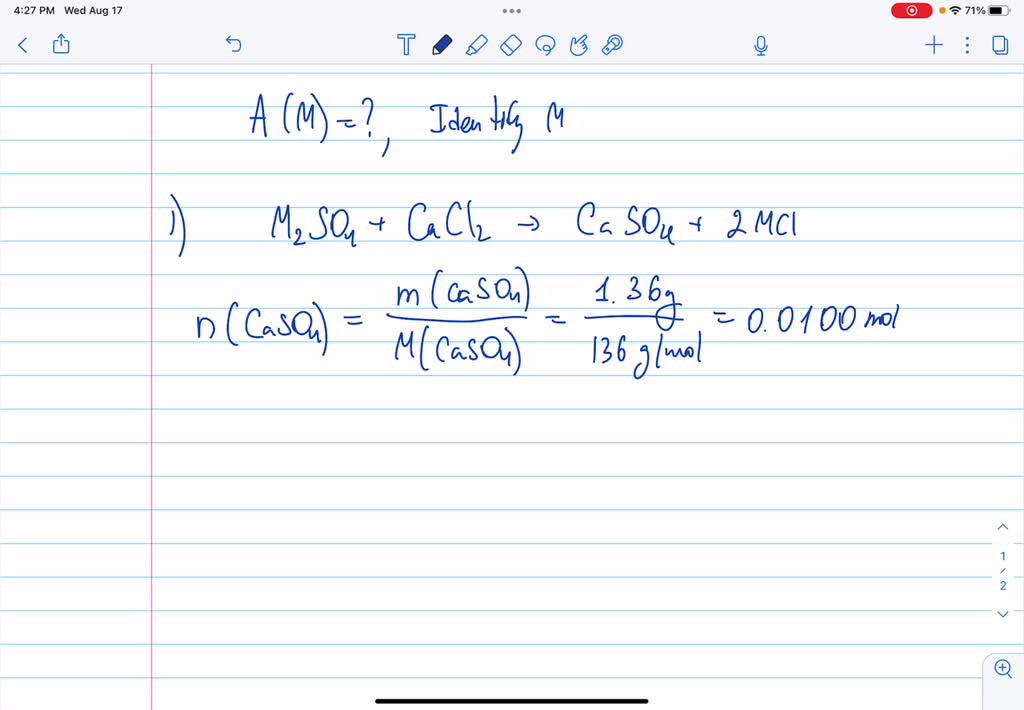 4:27 PM Wed Aug 17
71%
A (M) = ?, Identify M
1) M₂SO₄ + CaCl₂ → CaSO₄ + 2 MCl
n (CaSO₄) = m (CaSO₄) / M (CaSO₄) = 1.36g / 136 g/mol = 0.0100 mol
1
/
2